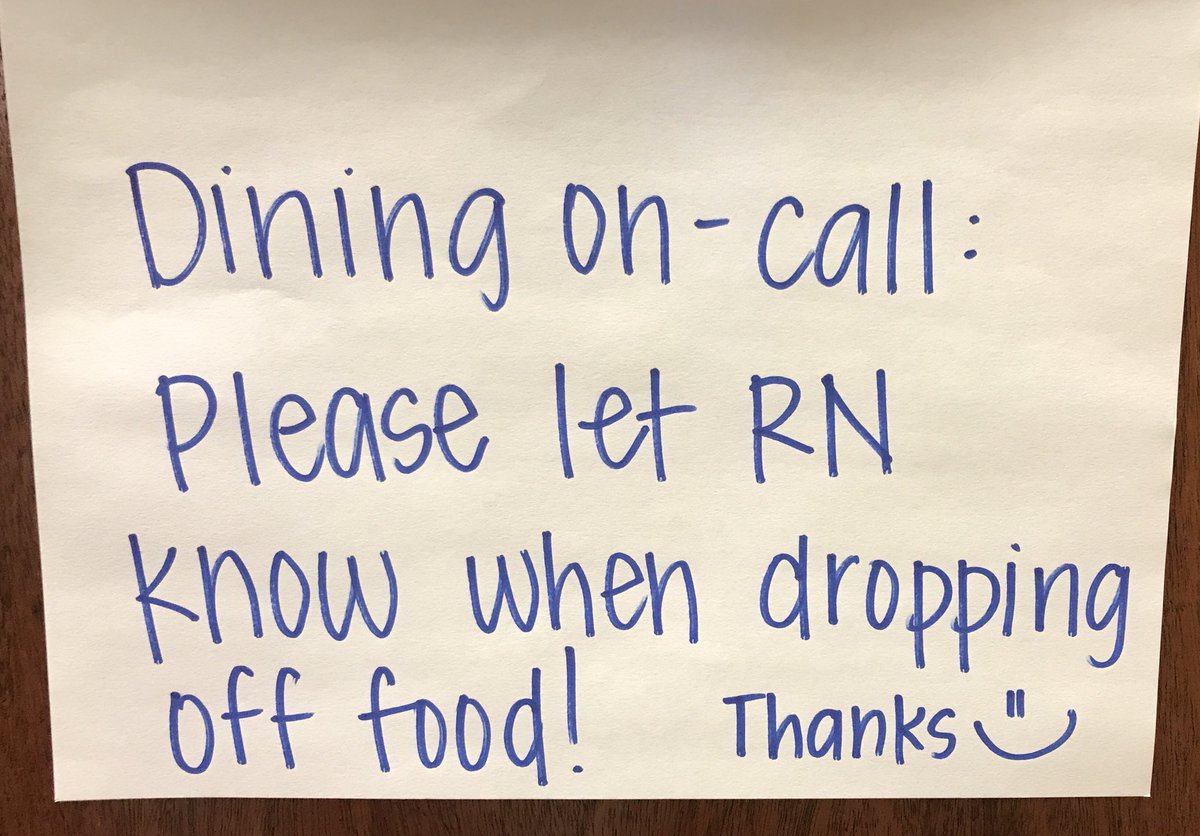 Dining on-call:
Please let RN
know when dropping
off food! Thanks